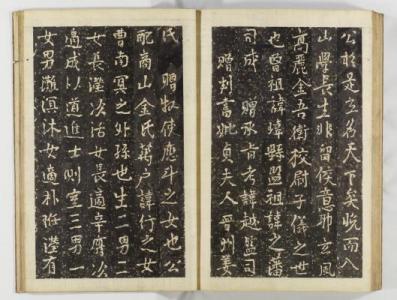 公於是乎名天下矣晩而入
山學長生非留侯意耶玄風
高麗金吾衛校尉子儀之世
也曾祖諱緯縣監祖諱之藩
司成贈承旨考諱越監司
贈判書妣貞夫人晉州姜
氏贈牧使應斗之女也公
配商山金氏萬戶諱行之女
曹南冥之外孫也生二男二
女長瀅次活女長適辛膺次
適成以道進士副室三男一
女男灘淇沐女適朴瀅有